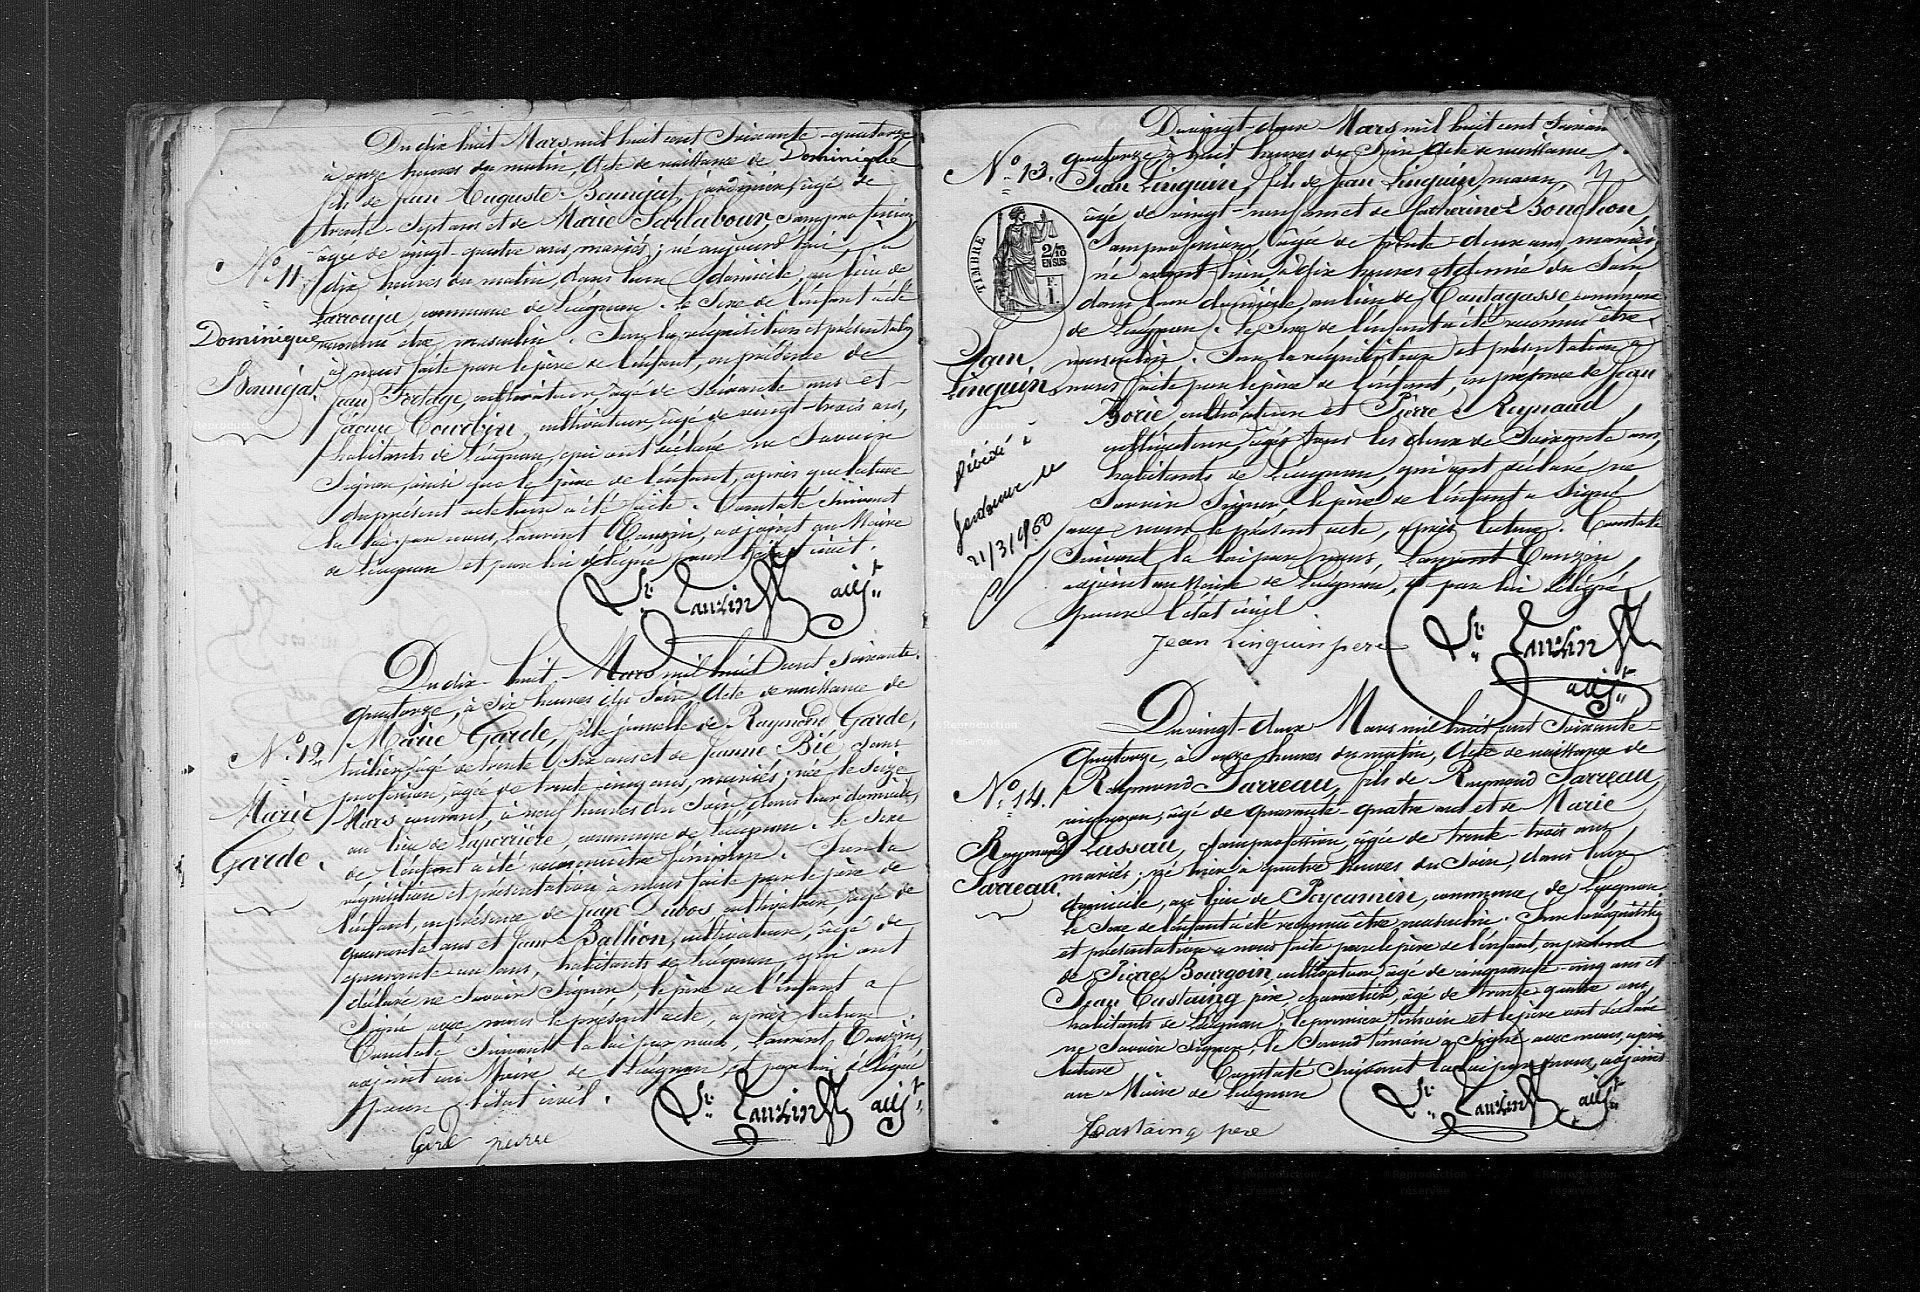 Du dix huit Mars mil huit cent Soixante-quatorze
à onze heures du matin, Acte de naissance de Dominique
fils de Jean Auguste Baunejat, jardinier, âgé de
trente-sept ans et de Marie Sarlabour, Sans profession
âgée de vingt-quatre ans, mariés; né aujourd'hui, à
N° 11.
dix heures du matin, dans leur domicile, au lieu de
commune de Luignan. Le Sexe de l'enfant a été
Dominique
reconnu être masculin. Sur la réquisition et présentation
Baunejat
à nous faite par le père de l'enfant, en présence de
Jean cultivateur, âgé de Soixante ans et
Courbin, cultivateur, âgé de vingt-trois ans,
habitants de Luignan, qui ont déclaré ne Savoir
Signer, ainsi que le père de l'enfant, après que lecture
du présent acte leur a été faite. Constaté Suivant
la loi par nous, Laurent Cauzin, adjoint au Maire
de Luignan et par lui délégué pour l'état civil.
Lt. Cauzin adjt
Du dix-huit Mars mil huit cent Soixante-
quatorze, à Six heures du Soir, Acte de naissance de
Marie Garde, fille jumelle de Raymond Garde,
N° 12
tuilier, âgé de trente Six ans et de Jeanne Bié, Sans
profession, âgée de trente-cinq ans, mariés; née le Seize
Marie
Mars courant, à neuf heures du Soir, dans leur domicile,
au lieu de Laperrière, commune de Luignan. Le Sexe
Garde.
de l'enfant a été reconnu être féminin. Sur la
réquisition et présentation à nous faite par le père de
l'enfant, en présence de Jean Dubos, cultivateur, âgé de
quarante ans et Jean Ballion, cultivateur, âgé de
quarante un ans, habitants de Luignan, qui ont
déclaré ne Savoir Signer, le père de l'enfant a
Signé avec nous le présent acte, après lecture.
Constaté Suivant la loi par nous, Laurent Cauzin,
adjoint au Maire de Luignan et par lui délégué
pour l'état civil.
Lt. Cauzin adjt
pierre
Du vingt-deux Mars mil huit cent Soixante
quatorze à huit heures du Soir, Acte de naissance
N° 13.
Jean Linguin, fils de Jean Linguin, maçon,
âgé de vingt-neuf ans et de Catherine Bouchon,
Sans profession, âgée de trente deux ans, mariés;
TIMBRE
2/10
EN SUS
F.
1.
né avant-hier, à dix heures et demie du Soir
dans leur domicile au lieu de Cantagasse commune
de Luignan. Le Sexe de l'enfant a été reconnu être
Jean
masculin. Sur la réquisition et présentation à
Linguin
nous faite par le père de l'enfant, en présence de Jean
Borie, cultivateur et Pierre Reynaud,
cultivateur, âgés tous les deux de Soixante ans,
habitants de Luignan, qui ont déclaré ne
Savoir Signer, le père de l'enfant a Signé
Décédé à
le
21/3/1950
avec nous le présent acte, après lecture. Constaté
Suivant la loi par nous, Laurent Cauzin,
adjoint au Maire de Luignan, et par lui délégué
pour l'état civil.
Jean Linguin pere
Lt. Cauzin adjt
Du vingt-deux Mars mil huit cent Soixante-
quatorze, à onze heures du matin, Acte de naissance de
Raymond Sarreau, fils de Raymond Sarreau,
N° 14.
vigneron, âgé de quarante-quatre ans et de Marie
Raymond
Lassau, Sans profession, âgée de trente-trois ans
Sarreau.
mariés; né hier à quatre heures du Soir, dans leur
domicile, au lieu de Peycamin, commune de Luignan
Le Sexe de l'enfant a été reconnu être masculin. Sur la réquisition
et présentation à nous faite par le père de l'enfant, en présence
de Pierre Bourgoin, cultivateur, âgé de cinquante-cinq ans et
Jean Castaing père, charretier, âgé de trente quatre ans,
habitants de Luignan; le premier témoin et le père ont déclaré
ne Savoir Signer, le Second témoin a Signé avec nous, après
lecture Constaté Suivant la loi par nous, adjoint
au Maire de Luignan
Lt. Cauzin adjt
Castaing pere